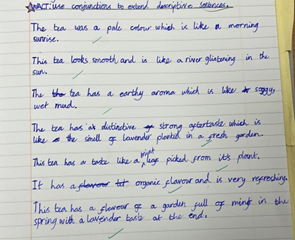 WACT: use conjunctions to extend descriptive sentences.
The tea was a pale colour which is like a morning
sunrise.
This tea looks smooth and is like a river glistening in the
sun.
The tea has a earthy aroma which is like soggy,
wet mud.
The tea has distinctive strong aftertaste which is
like the smell of lavender planted in a fresh garden.
This tea has a taste like a mint picked from its plant.
It has a organic flavour and is very refreshing.
This tea has a flavour of a garden full of mint in the
spring with a lavender taste at the end.